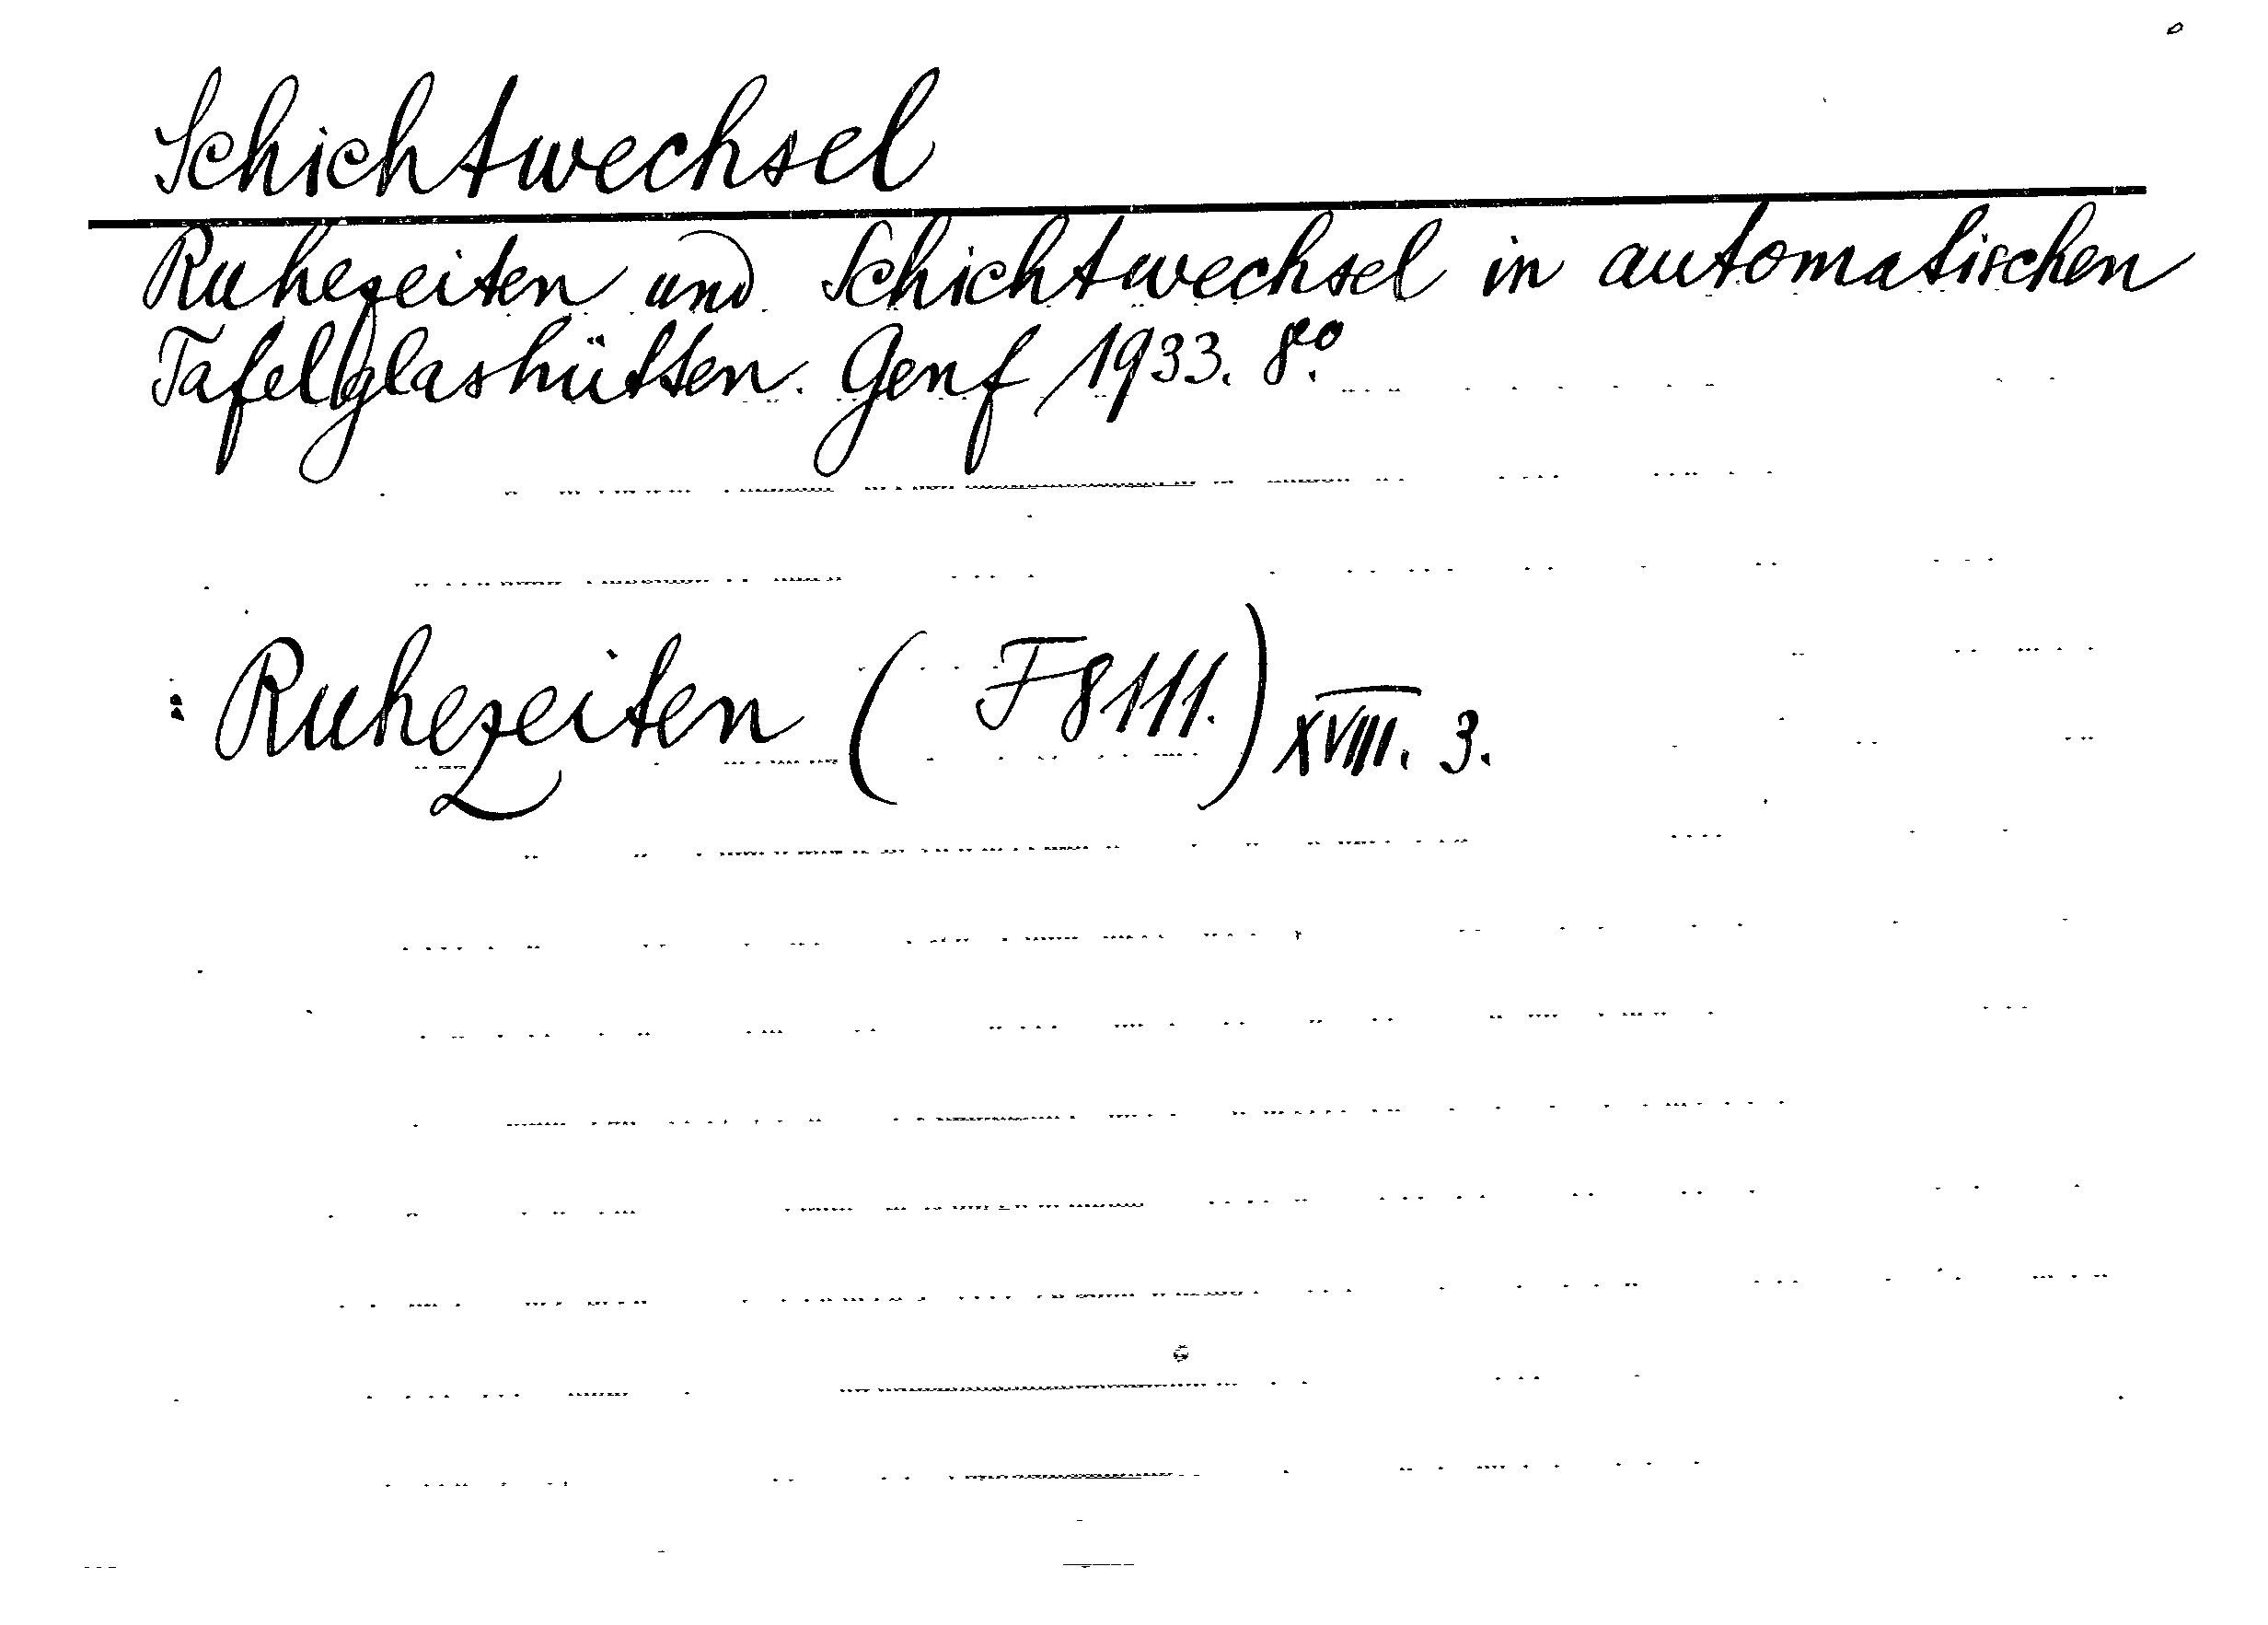 Schichtwechsel
Ruhezeiten und Schichtwechsel in automatischen
Tafelglashütten. Genf 1933. 8º.
: Ruhezeiten ( F 8111.) XVIII. 3.